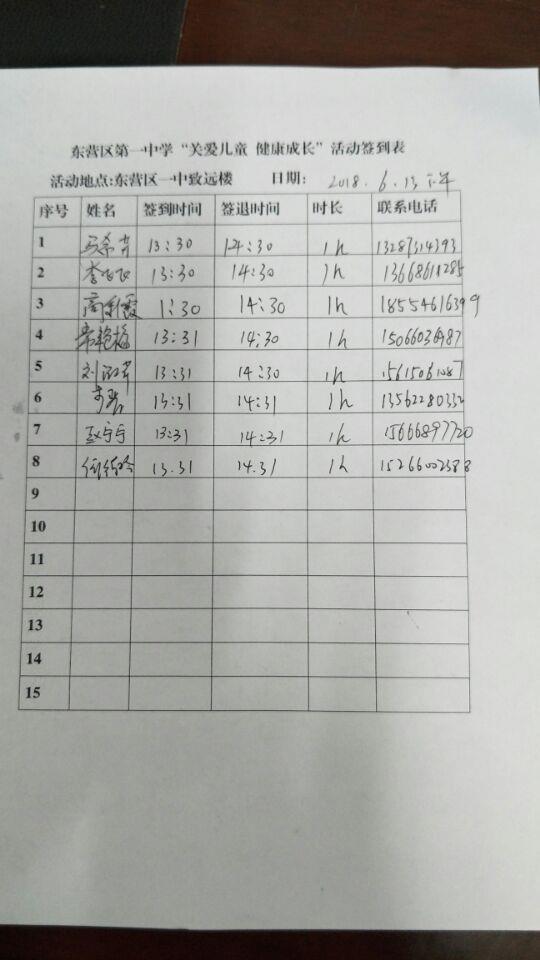 东营区第一中学“关爱儿童 健康成长”活动签到表
活动地点:东营区一中致远楼 日期: 2018.6.13 下午
序号 姓名 签到时间 签退时间 时长 联系电话
1 13:30 14:30 1h 13287314393
2 李飞飞 13:30 14:30 1h
3 高彩霞 1:30 14:30 1h 18554616399
4 13:31 14:30 1h 15066036987
5 13:31 14:30 1h 15615061087
6 13:31 14:31 1h 13562280332
7 赵宁宁 13:31 14:31 1h 15666897720
8 13.31 14.31 1h 15266002388
9
10
11
12
13
14
15